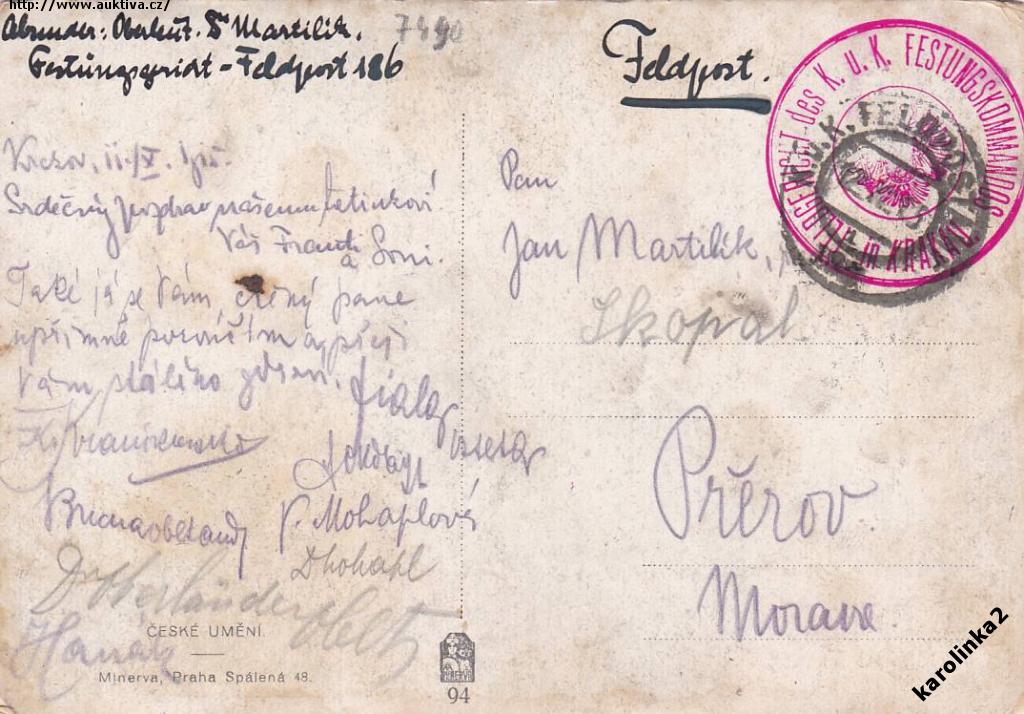 http://www.auktiva.cz/
Absender: Oberleut. Dr Martilík.
Festungsgericht - Feldpost 186
7490
Feldpost.
FELDGERICHT des K. u. K. FESTUNGSKOMMANDOS in KRAKAU.
K.u.K. FELDPOSTAMT
Srdečný pozdrav našemu tatínkovi
Váš Franta
a Soni.
Také já se Vám, ctěný pane
upřímně poroučím a přeji
Vám stálého zdraví.
V. Mohaplová
Dr Oberländer
Hanák
Pan
Jan Martilík,
Skopal
Přerov
Morava.
ČESKÉ UMĚNÍ.
Minerva, Praha Spálená 48.
94
karolinka2